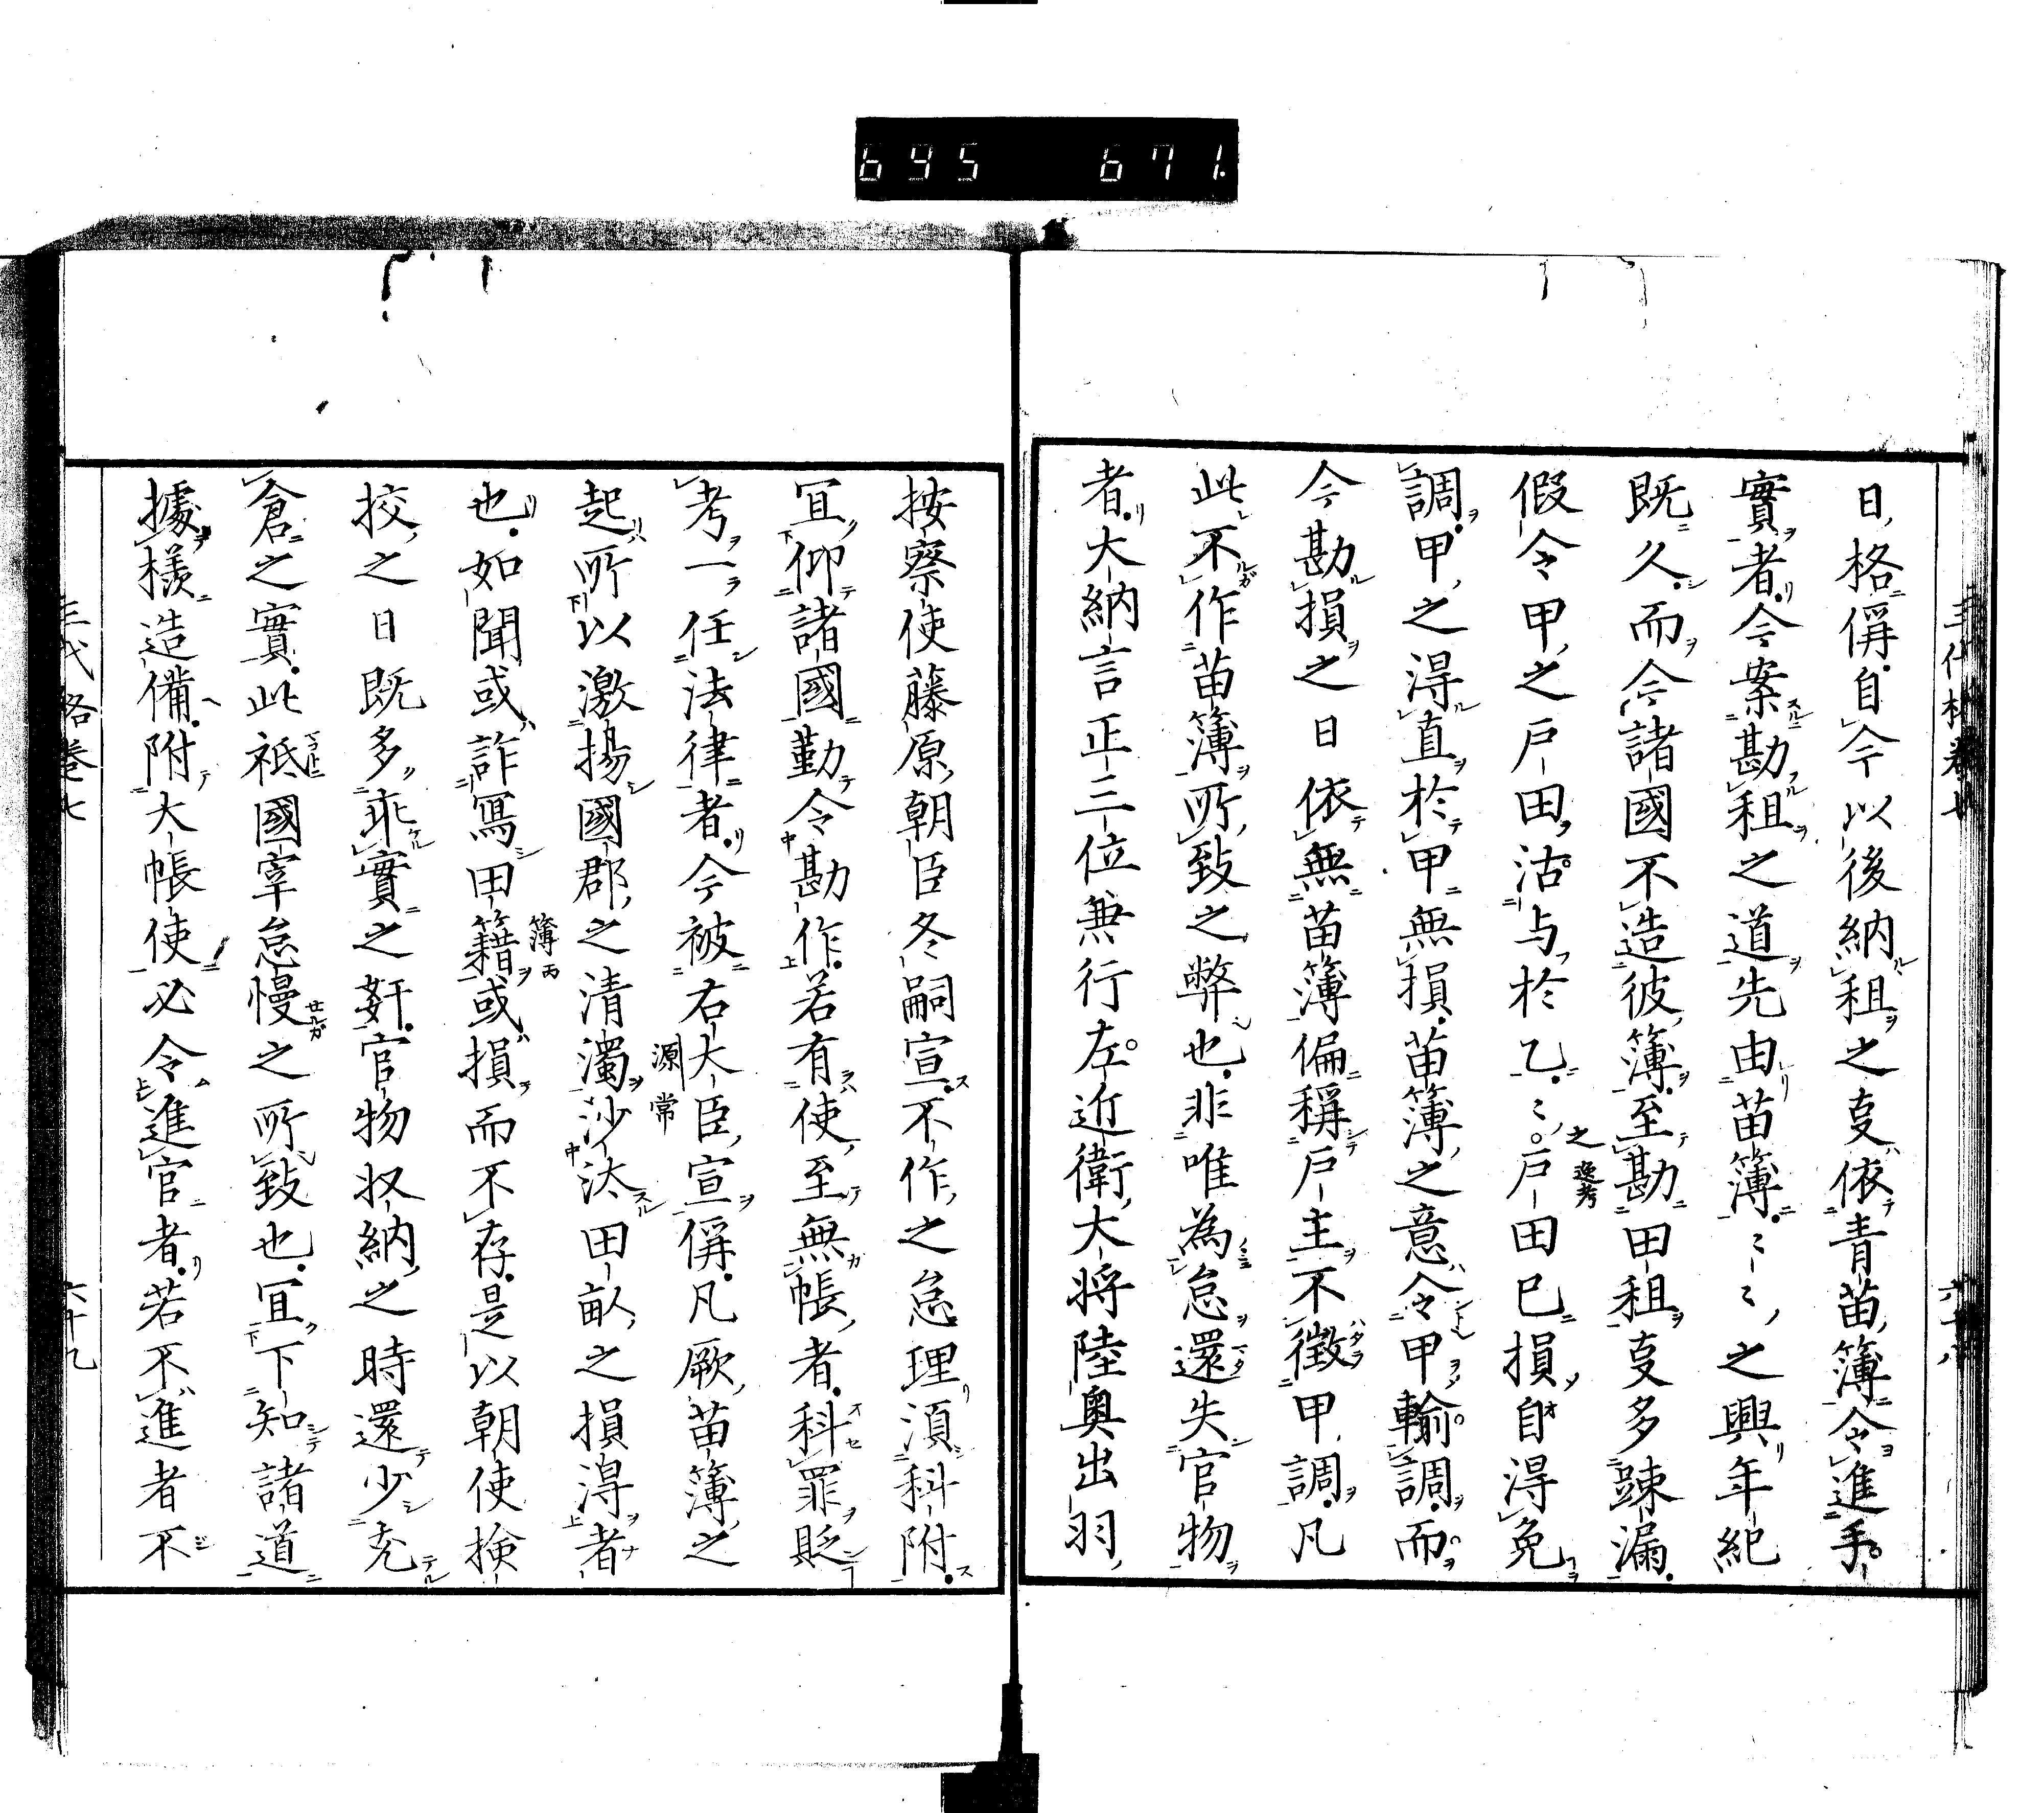 695 671.
日格偁自今以後納租之㕝依青苗簿令進手
實者今案勘租之道先由苗簿〻〻之興年紀
既久而今諸國不造彼簿至勘田租㕝多踈漏
假令甲之戸田沽与於乙〻之戸田已損自得免
之逸考
調甲之得直於甲無損苗簿之意令甲輸調而
今勘損之日依無苗簿偏稱戸主不徴甲調凡
此不作苗簿所致之弊也非唯為怠還失官物
者大納言正三位兼行左近衛大将陸奥出羽
按察使藤原朝臣冬嗣宣不作之怠理湏科附
冝仰諸國勤令勘作若有使至無帳者科罪貶
考一任法律者今被右大臣宣偁凡厥苗簿之
源常
起所以激揚國郡之清濁沙汰田畝之損淂者
也如聞或詐冩田籍或損而不存是以朝使検
簿丙
挍之日既多乖實之奸官物収納之時還少充
倉之實此祇國宰怠慢之所致也冝下知諸道
據様造備附大帳使必令進官者若不進者不
三代格卷七 六十九